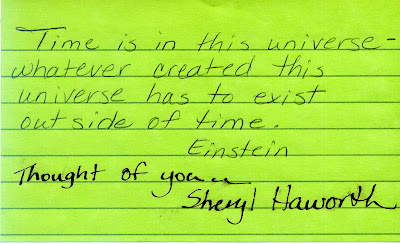 Time is in this universe-
whatever created this
universe has to exist
outside of time.
Einstein
Thought of you...
Sheryl Haworth